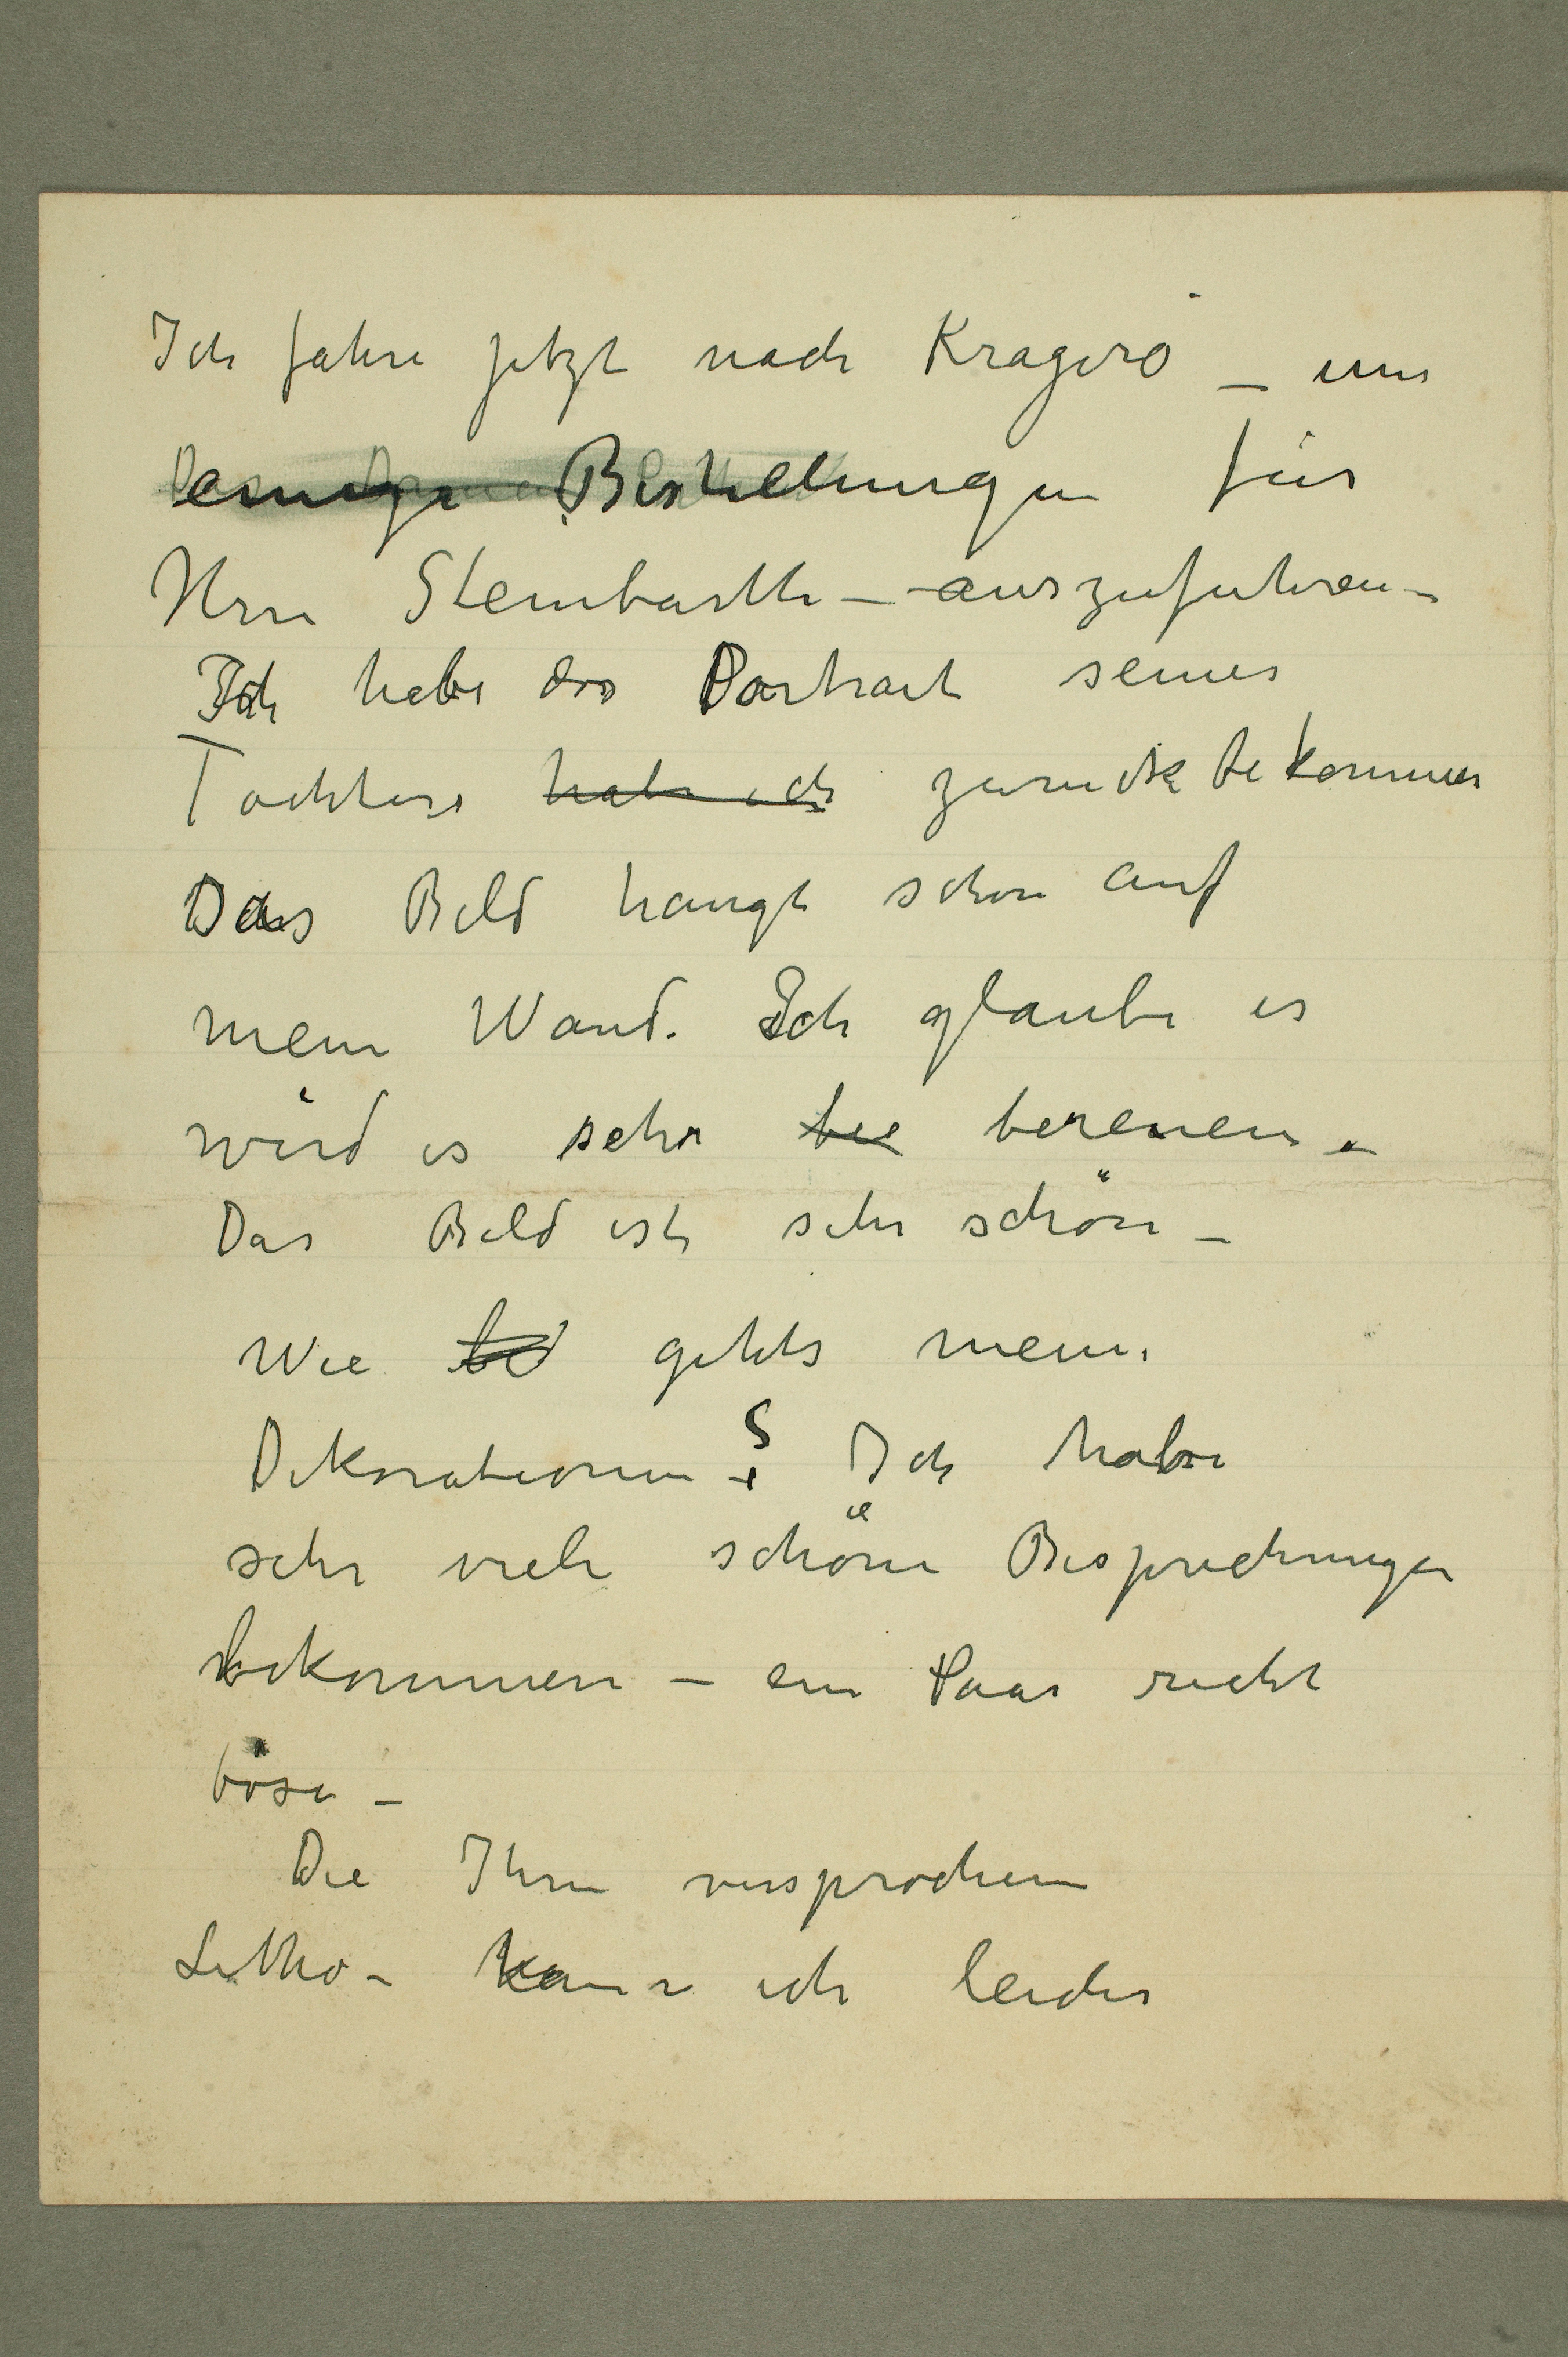 Ich fahre jetzt nach Kragerö – um
einige Bestellungen für
Herr Steinbarth – auszufuhren –
Ich habe das Portrait seiner
Tochters habe ich zuruckbekommen
Das Bild hangt schon auf
mein Wand. Ich glaube er
wird es sehr be bereuen –
Das Bild ist sehr schön –
Wie be gehts meine
Dekorationen? Ich habe
sehr viele schöne Besprechungen
bekommen – ein Paar recht
böse –
Die Ihnen versprochene
Litho – kann ich leider